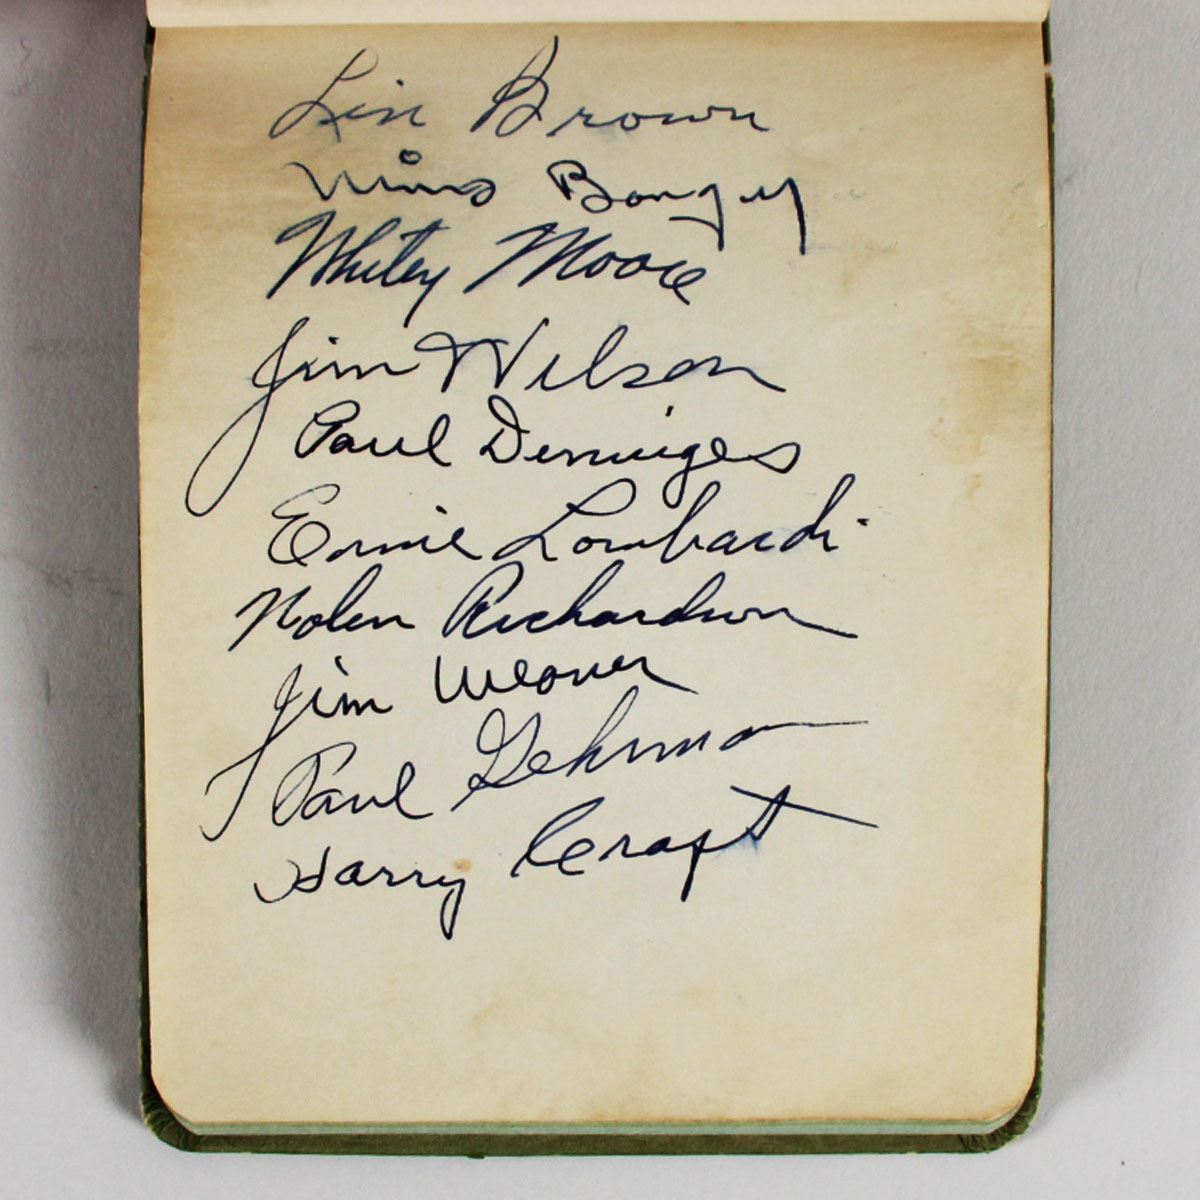 Lin Brown
Nino Bongy
Whitey Moore
Jim Wilson
Paul Derringer
Ernie Lombardi
Nolen Richardson
Jim Weaver
Paul Gehrman
Harry Craft